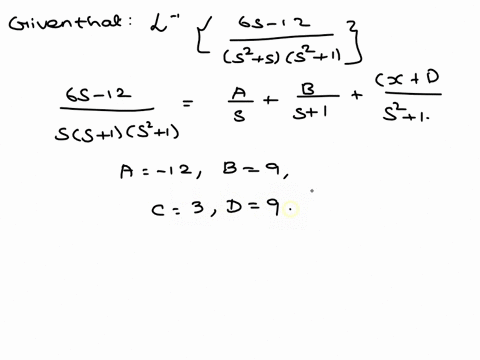 Given that: L⁻¹ { 6s-12 / (s²+s)(s²+1) }
6s-12 / s(s+1)(s²+1) = A/s + B/s+1 + Cx+D / s²+1.
A = -12, B = 9,
C = 3, D = 9.